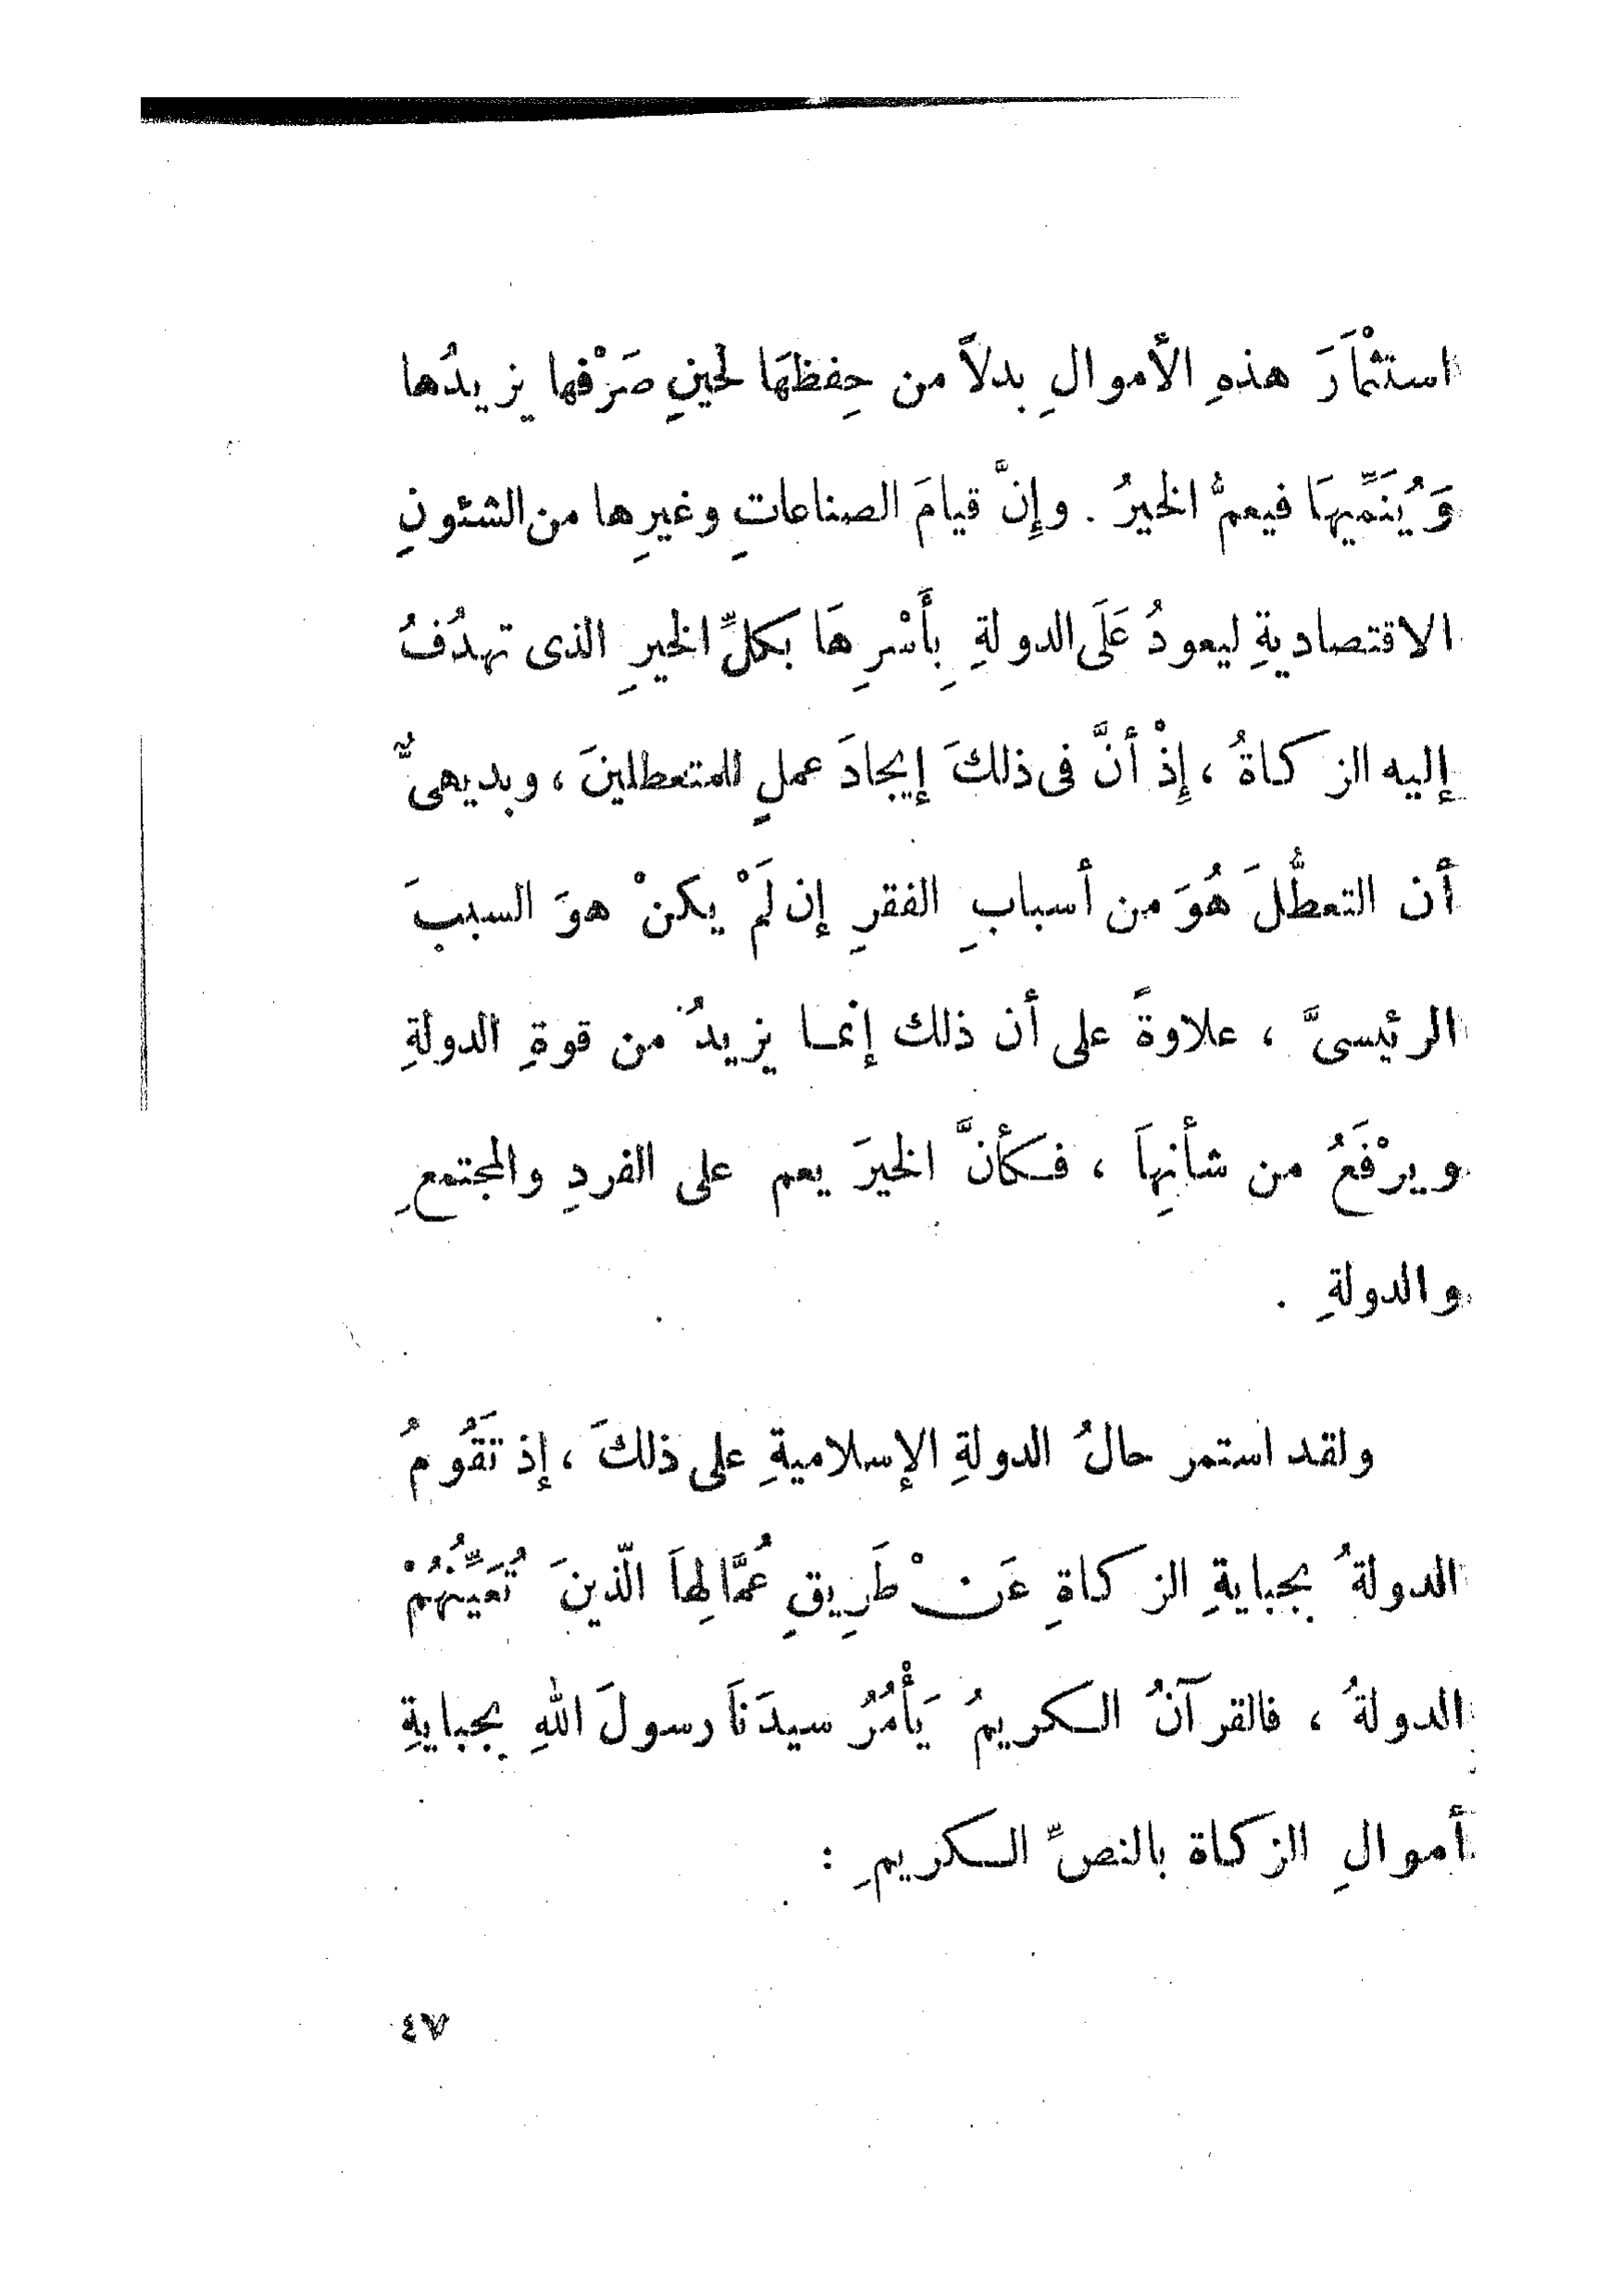 استثْمَارَ هذهِ الأموالِ بدلاً من حِفظهَا لحينِ صَرْفها يزيدُها
وَيُنَمِّيهَا فيعمُّ الخيرُ . وإِنَّ قيامَ الصناعاتِ وغيرِها من الشئونِ
الاقتصاديةِ ليعودُ عَلَى الدولةِ بِأَسْرِهَا بكلِّ الخيرِ الذى تهدُفُ
إليه الزكاةُ ، إِذْ أنَّ فى ذلكَ إيجادَ عملٍ للمتعطلينَ ، وبديهىٌّ
أن التعطُّلَ هُوَ من أسبابِ الفقرِ إن لَمْ يكنْ هوَ السببَ
الرئيسىَّ ، علاوةً على أن ذلك إنما يزيدُ من قوةِ الدولةِ
ويرْفَعُ من شأنِهاَ ، فكأنَّ الخيرَ يعم على الفردِ والمجتمعِ
والدولةِ .
ولقد استمر حالُ الدولةِ الإسلاميةِ على ذلكَ ، إذ تَقُومُ
الدولةُ بجبايةِ الزكاةِ عَنْ طَرِيقِ عُمَّالِهاَ الّذينَ تُعَيِّنُهُمْ
الدولةُ ، فالقرآنُ الكريمُ يَأْمُرُ سيدَنَا رسولَ اللهِ بجبايةِ
أموالِ الزكاة بالنصِّ الكريمِ :
٤٧